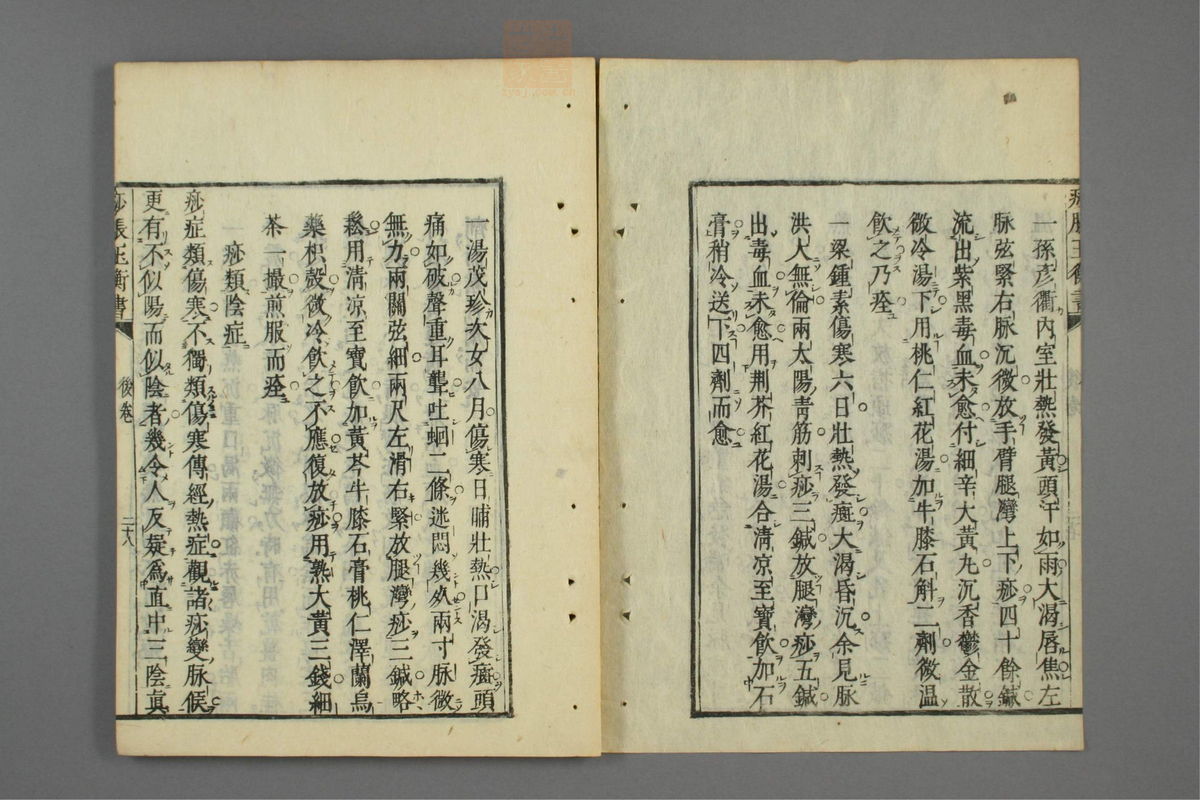 一孫彦衢內室壯熱發黃頭汗如雨大渴唇焦左
脉弦緊右脉沉微放手臂腿灣上下痧四十餘鍼
流出紫黑毒血未愈付細辛大黃丸沉香鬱金散
微冷湯下用桃仁紅花湯加牛膝石斛二劑微温
飲之乃痊
一梁鍾素傷寒六日壯熱發斑大渴昏沉余見脉
洪大無倫兩太陽青筋刺痧三鍼放腿灣痧五鍼
出毒血未愈用荆芥紅花湯合清凉至寶飲加石
膏稍冷送下四劑而愈
一湯茂珍次女八月傷寒日晡壯熱口渴發斑頭
痛如破聲重耳聾吐蛔二條迷悶幾死兩寸脉微
無力兩關弦細兩尺左滑右緊放腿灣痧三鍼略
鬆用清凉至寶飲加黃芩牛膝石膏桃仁澤蘭烏
藥枳殻微冷飲之不應復放痧用熟大黃三錢細
茶一撮煎服而痊
痧類陰症
痧症類傷寒不獨類傷寒傳經熱症觀諸痧變脉候
更有不似陽而似陰者幾令人反疑爲直中三陰眞
痧脹玉衡書
後卷
二十八